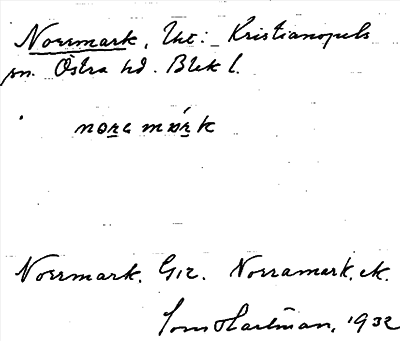 Norrmark, Utr: Kristianopels
sn. Östra hd. Blek l.
nɷrɛ mɷrk
Norrmark. G12. Norramark, ek.
Tom Hartman, 1932